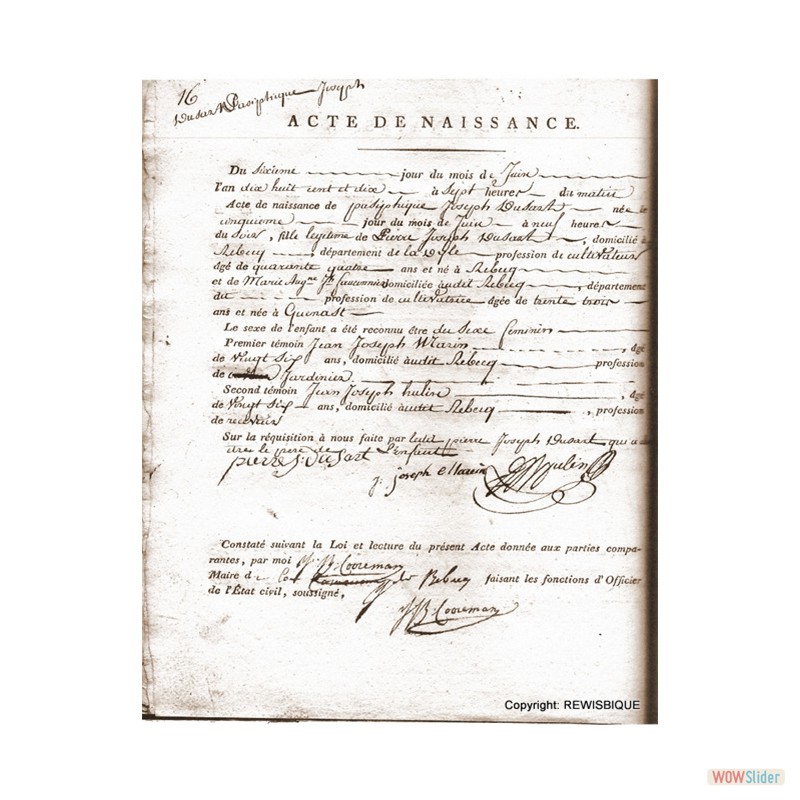 16
Dusart Pasiphique Joseph
ACTE DE NAISSANCE.
Du Sixieme jour du mois de Juin
l'an dix huit cent et dix à Sept heures du matin
Acte de naissance de pasiphique Joseph Dusart née le
cinquieme jour du mois de Juin à neuf heures
du Soir, fille legitime de Pierre Joseph Dusart, domicilié à
Rebecq, département de la Dyle profession de cultivateur
âgé de quarante quatre ans et né à Rebecq
et de Marie Augne Jh domiciliée audit Rebecq, département
du profession de cultivatrice âgée de trente trois
ans et née à Quenast
Le sexe de l'enfant a été reconnu être du Sexe feminin
Premier témoin Jean Joseph Marin, âgé
de Vingt Six ans, domicilié audit Rebecq profession
de Jardinier
Second témoin Jean Joseph hulin, âgé
de Vingt Six ans, domicilié audit Rebecq, profession
de receveur
Sur la réquisition à nous faite par ledit pierre Joseph Dusart qui a
dit être le pere de L'enfant
pierre J: Dusart
J: joseph Marin
JJ hulin
Constaté suivant la Loi et lecture du présent Acte donnée aux parties compa-
rantes, par moi J. B. Cooreman
Maire de La de Rebecq faisant les fonctions d'Officier
de l'État civil, soussigné,
J. B. Cooreman
Copyright: REWISBIQUE
WOWSlider